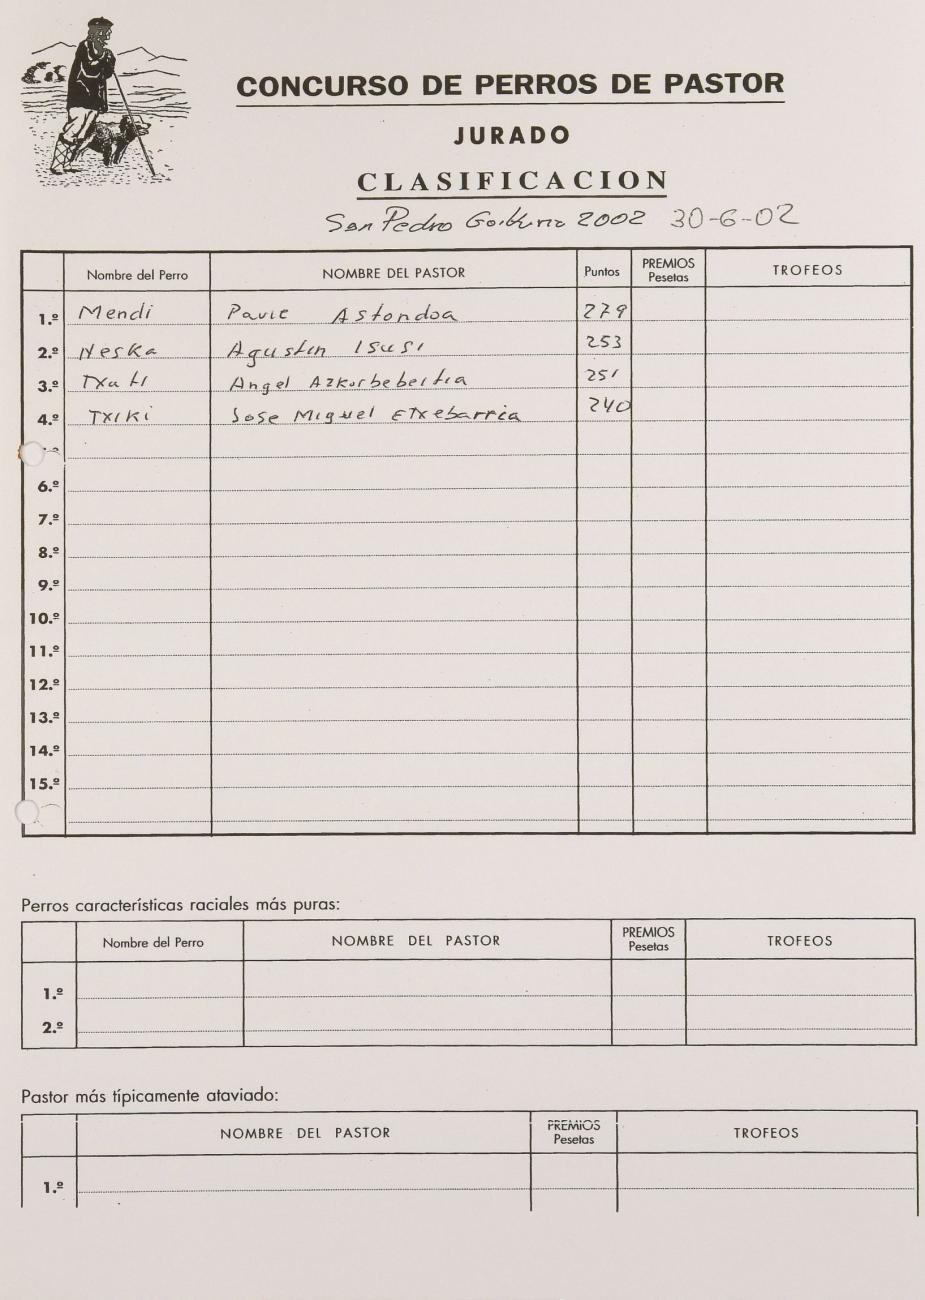 CONCURSO DE PERROS DE PASTOR
JURADO
CLASIFICACION
San Pedro 2002 30-6-02
Nombre del Perro NOMBRE DEL PASTOR Puntos PREMIOS Pesetas TROFEOS
1.º Mendi Astondoa 279
2.º Neska Agustin Isusi 253
3.º Txati Angel Azkorbebeitia 251
4.º Txiki Jose Miguel Etxebarria 240
6.º
7.º
8.º
9.º
10.º
11.º
12.º
13.º
14.º
15.º
Perros características raciales más puras:
Nombre del Perro NOMBRE DEL PASTOR PREMIOS Pesetas TROFEOS
1.º
2.º
Pastor más típicamente ataviado:
NOMBRE DEL PASTOR PREMIOS Pesetas TROFEOS
1.º